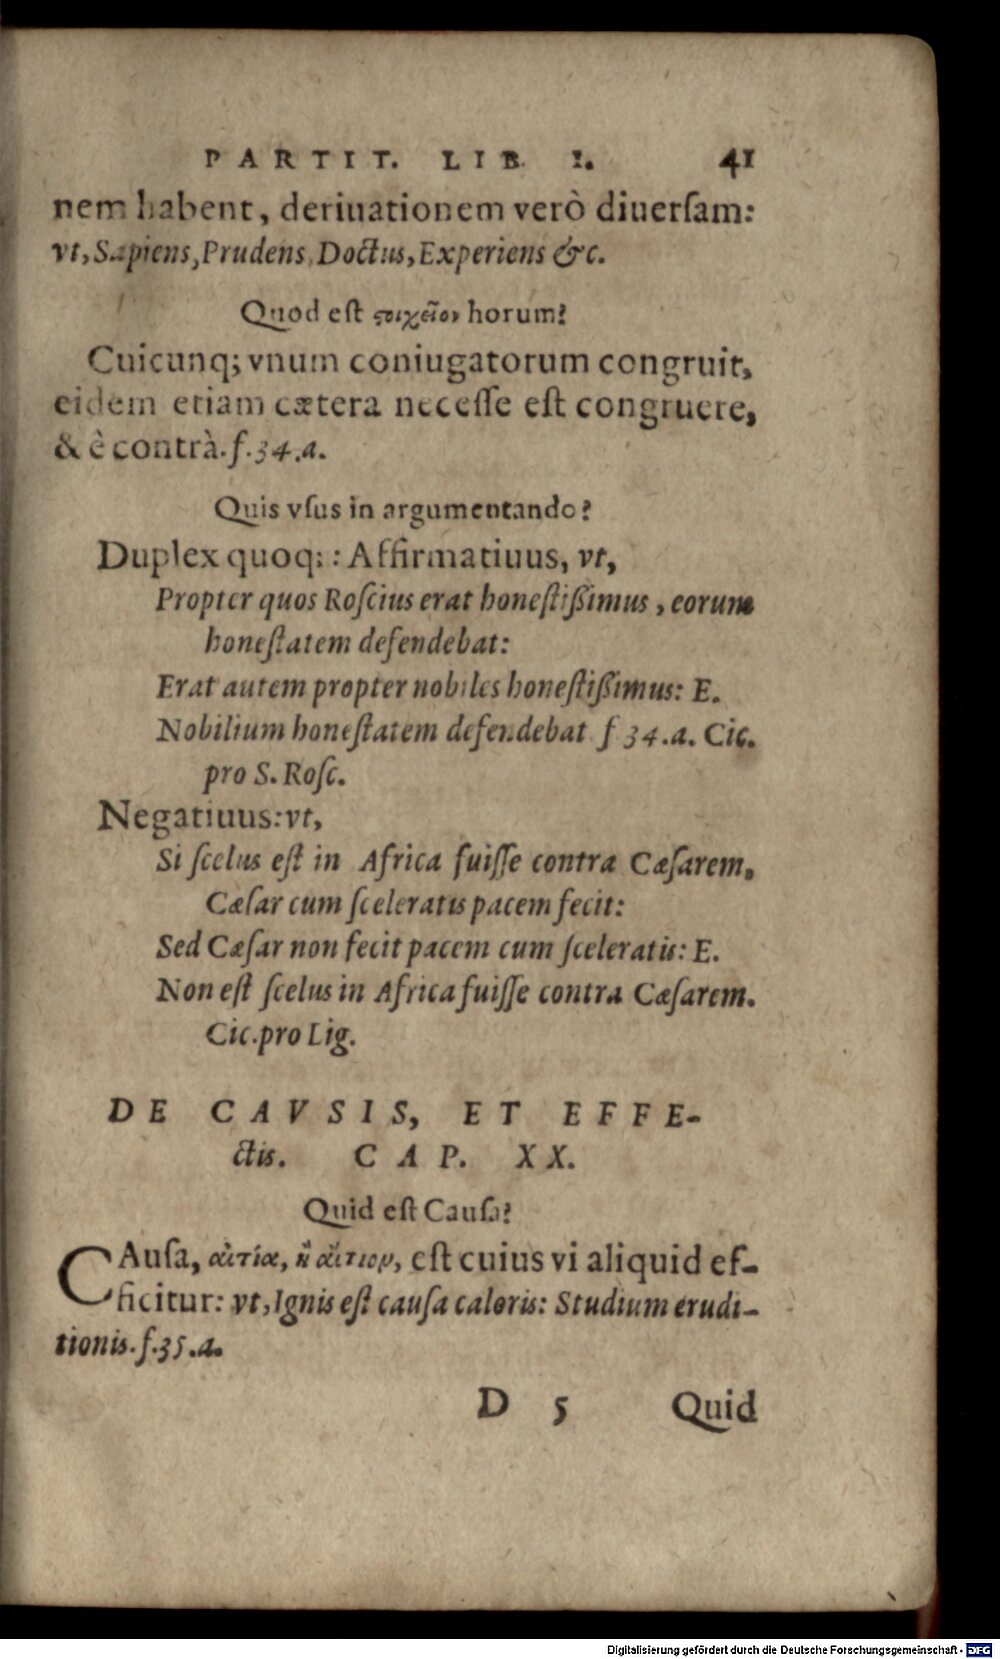 PARTIT. LIB. I. 41
nem habent, deriuationem verò diuerſam:
vt, Sapiens, Prudens, Doctus, Experiens &c.
Quod eſt ϛοιχεῖον horum?
Cuicunq; vnum coniugatorum congruit,
eidem etiam cætera neceſſe eſt congruere,
& è contrà. f. 34. a.
Quis vſus in argumentando?
Duplex quoq;: Affirmatiuus, vt,
Propter quos Roſcius erat honeſtißimus, eorum
honeſtatem defendebat:
Erat autem propter nobiles honeſtißimus: E.
Nobilium honeſtatem defendebat f 34. a. Cic.
pro S. Roſc.
Negatiuus: vt,
Si ſcelus eſt in Africa fuiſſe contra Cæſarem.
Cæſar cum ſceleratis pacem fecit:
Sed Cæſar non fecit pacem cum ſceleratis: E.
Non eſt ſcelus in Africa fuiſſe contra Cæſarem.
Cic. pro Lig.
DE CAVSIS, ET EFFE-
ctis. CAP. XX.
Quid eſt Cauſa?
CAuſa, αἰτία, ἢ αἴτιον, eſt cuius vi aliquid ef-
ficitur: vt, Ignis eſt cauſa caloris: Studium erudi-
tionis. f. 35. a.
D 5 Quid
Digitalisierung gefördert durch die Deutsche Forschungsgemeinschaft - DFG